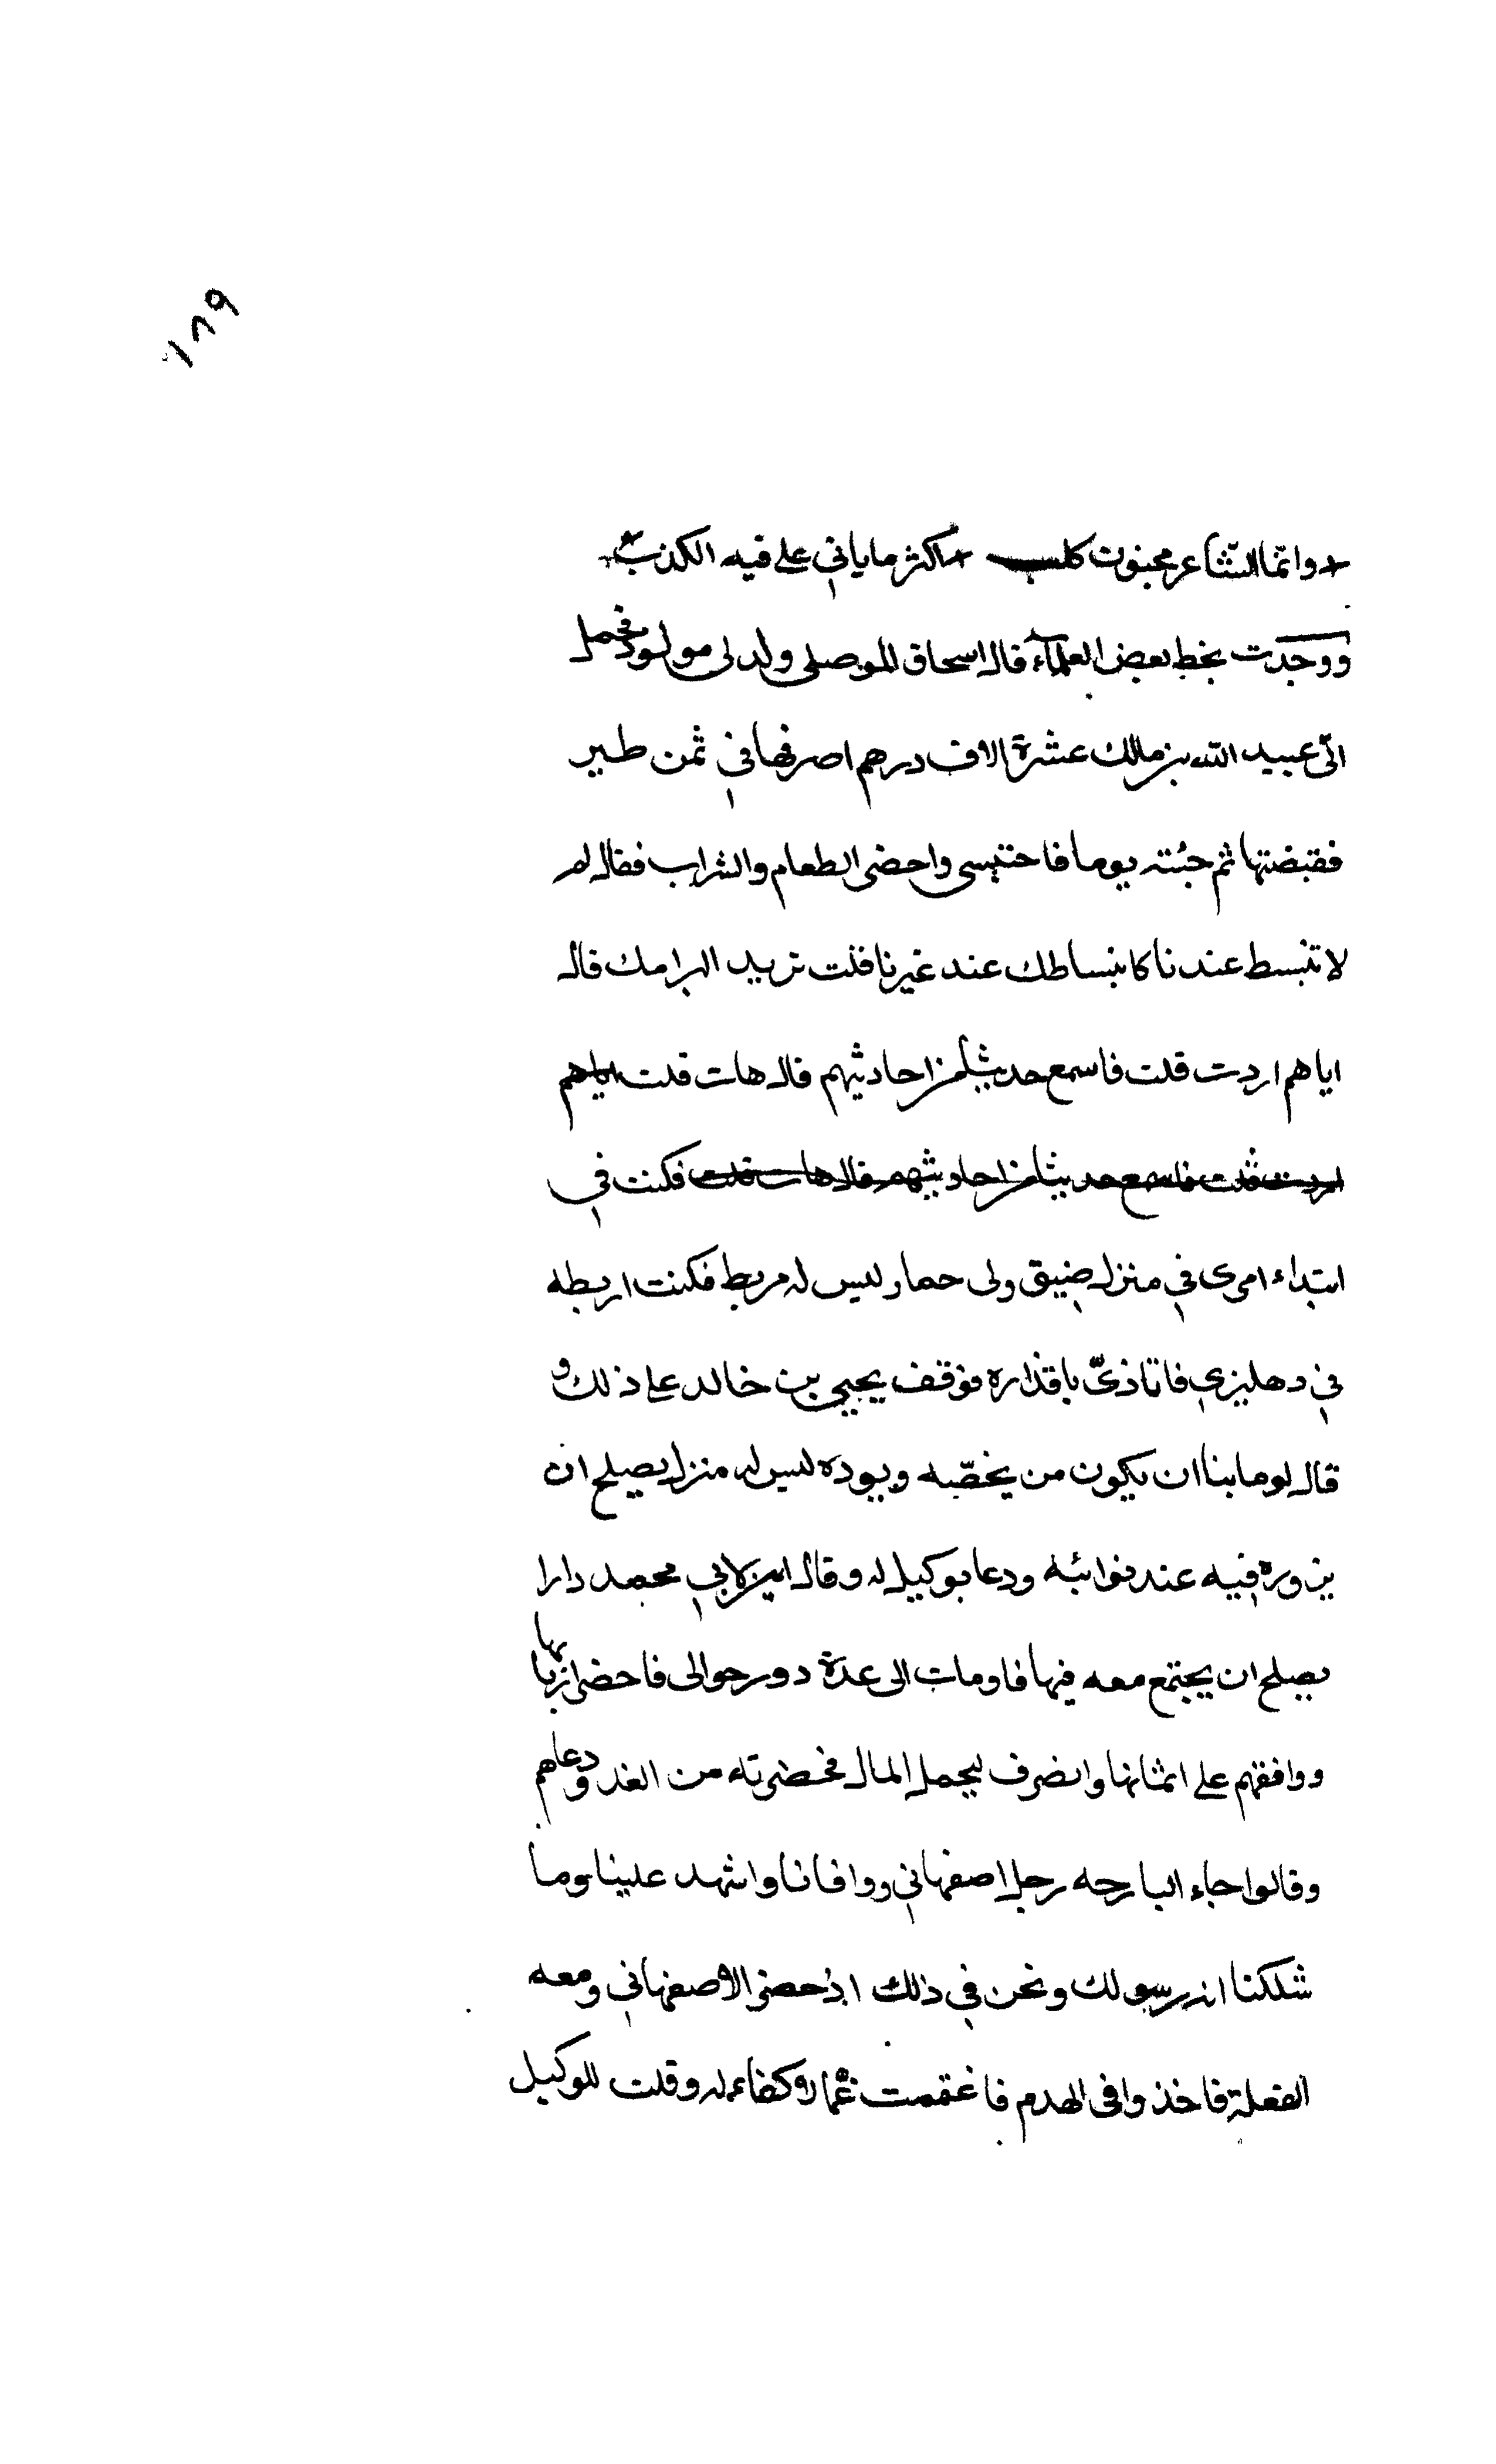 ١٨٩
وانما الشاعر مجنون كلب اكثر ما ياتي على فيه الكذب
ووجدت بخط بعض العلماء قال اسحاق الموصلي ولد لي مولود فحمل
الي عبيد الله بن مالك عشرة الاف درهم اصرفها في ثمن طير
فقبضتها ثم جئته يوما فاحتبسي واحضر الطعام والشراب فقال لم
لا تنبسط عندنا كانبساطك عند غيرنا فقلت تريد البرامك قال
اياهم اردت قلت فاسمع حديثا من احاديثهم قال هات قلت اياهم
اردت قلت فاسمع حديثا من احاديثهم قال هات قلت فكنت في
ابتداء امرى في منزل ضيق ولى حمار ليس له مربط فكنت اربطه
في دهليزي فاتاذىّ باقذاره فوقف يحيى بن خالد على ذلك و
قال يوما بنا ان يكون من يخصّه ويوده ليس له منزل يصلح ان
يزوره فيه عند نوائبه ودعا بوكيل له وقال لابي محمد دارا
يصلح ان يجتمع معه فيها فاومات الى عدة دور حوالى فاحضر اربابها
ووافقهم على اثمانها وانصرف ليحمل المال فحضرته من الغد ودعاهم
وقالوا جاء البارحه رجل اصفهاني ووافانا واشهد علينا وما
شككنا انه رسولك ونحن في ذلك اذ حضر الاصفهاني ومعه
الفعلة فاخذوا في الهدم فاغتممت غما لا كفاء له وقلت للوكيل